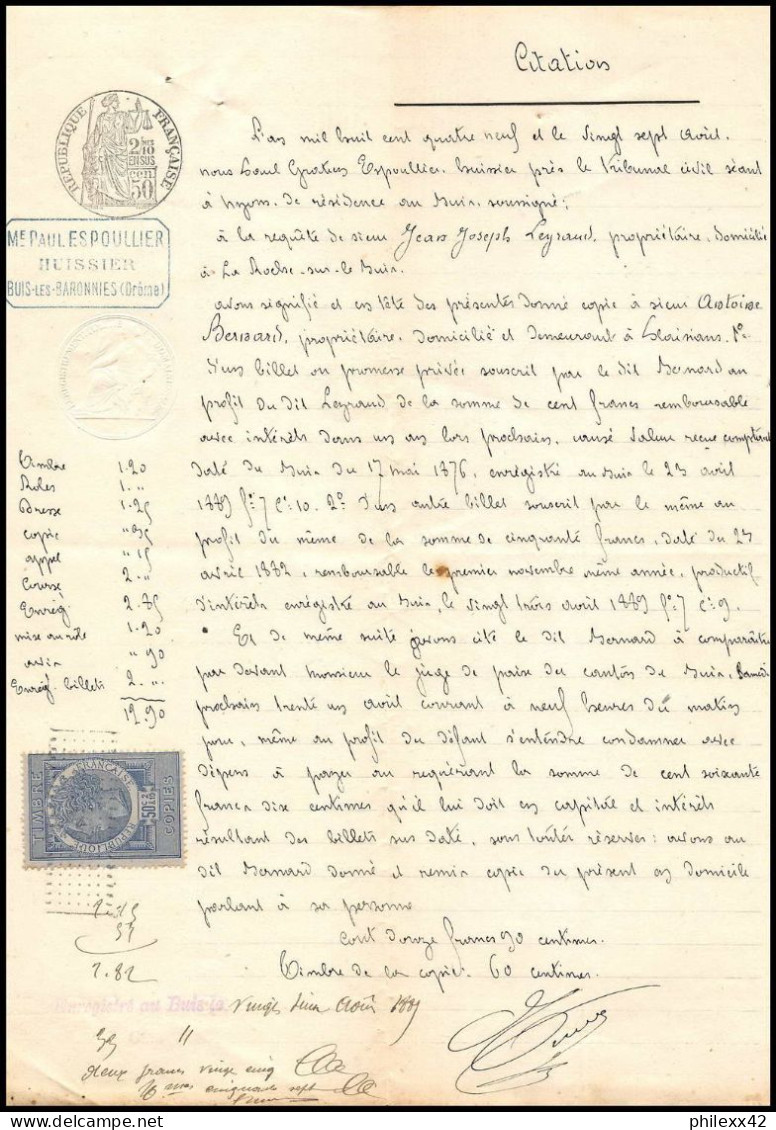 Citation
RÉPUBLIQUE FRANÇAISE
2/10 EN SUS
50 CEN
L'an mil huit cent quatre neuf et le vingt sept avril.
nous Paul Gratus Espoullier, huissier près le tribunal civil séant
à Nyons, de résidence au Buis, soussigné;
à la requête de sieur Jean Joseph Leyraud, propriétaire, domicilié
à La Roche-sur-le Buis.
avons signifié et en tête des présentes donné copie à sieur Antoine
Bernard, propriétaire, domicilié et demeurant à Plaisians. 1°
d'un billet ou promesse privée souscrit par le dit Bernard au
profit du dit Leyraud de la somme de cent francs remboursable
avec intérêts dans un an lors prochain, causé valeur reçue comptant
daté du Buis du 17 mai 1876, enregistré au Buis le 23 avril
1889 f° 7 c° 10. 2° d'un autre billet souscrit par le même au
profit du même de la somme de cinquante francs, daté du 27
avril 1882, remboursable le premier novembre même année, productif
d'intérêts enregistré au Buis, le vingt trois avril 1889 f° 7 c° 9.
Et de même suite avons cité le dit Bernard à comparaître
par devant monsieur le juge de paix du canton du Buis, Samedi
prochain trente un avril courant à neuf heures du matin
pour, même au profit du défaut s'entendre condamner avec
dépens à payer au requérant la somme de cent soixante
francs dix centimes qu'il lui doit en capital et intérêts
résultant des billets sus daté, sous toutes réserves: avons au
dit Bernard donné et remis copie du présent en domicile
parlant à sa personne
Cout douze francs 90 centimes.
Timbre de la copie: 60 centimes.
Me PAUL ESPOULLIER
HUISSIER
BUIS-LES-BARONNIES (Drôme)
Timbre 1.20
Roles 1. "
Dresse 1.25
copie "
appel " 15
Course 2. "
Enreg 2.85
mise au rôle 1.20
avis " 90
Enreg. billets 2. "
12.90
TIMBRE
COPIES
FRANÇAISE
2.82
Enregistré au Buis le vingt Août
deux francs vingt cinq
cinquante sept
delcampe.net
philexx42